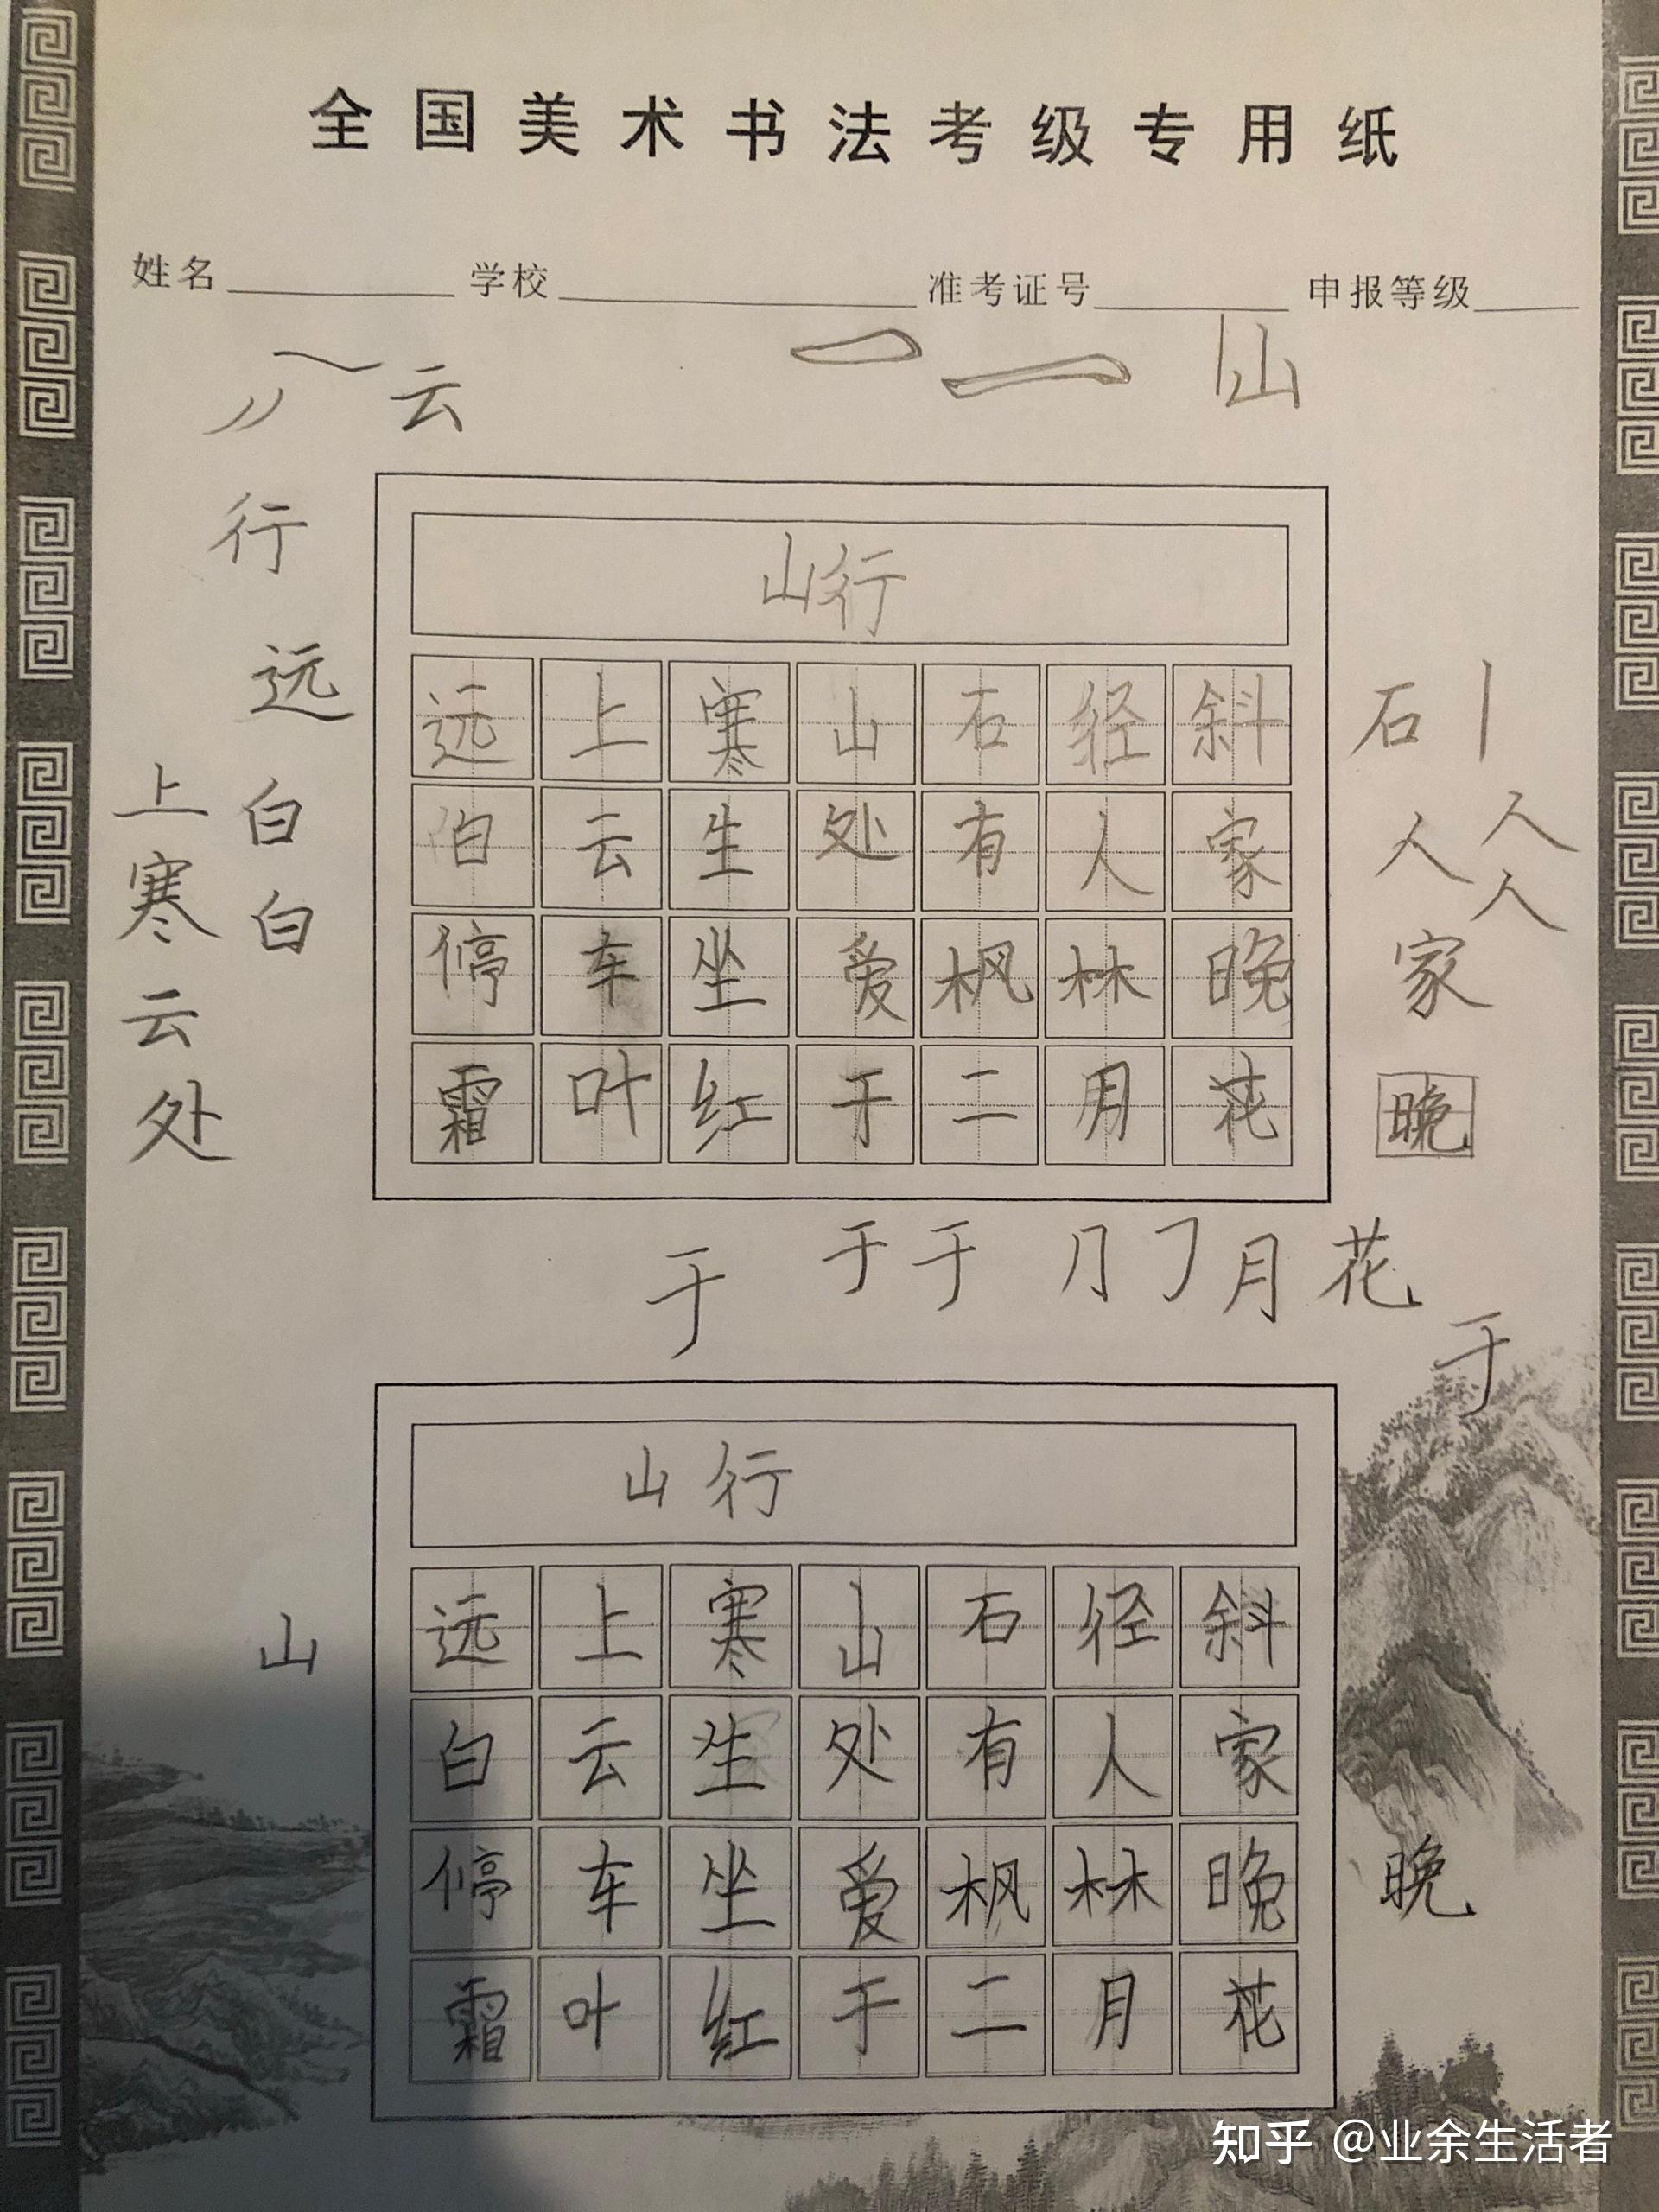 全国美术书法考级专用纸
姓名 学校 准考证号 申报等级
云 一 一 山
行
山行
远
远上寒山石径斜
石
上 白
白云生处有人家
人 人
人
寒 白
停车坐爱枫林晚
家
云
处
霜叶红于二月花
晚
于 于 于 月 月 花
于
山 行
山
远上寒山石径斜
白云生处有人家
停车坐爱枫林晚
晚
霜叶红于二月花
知乎 @业余生活者